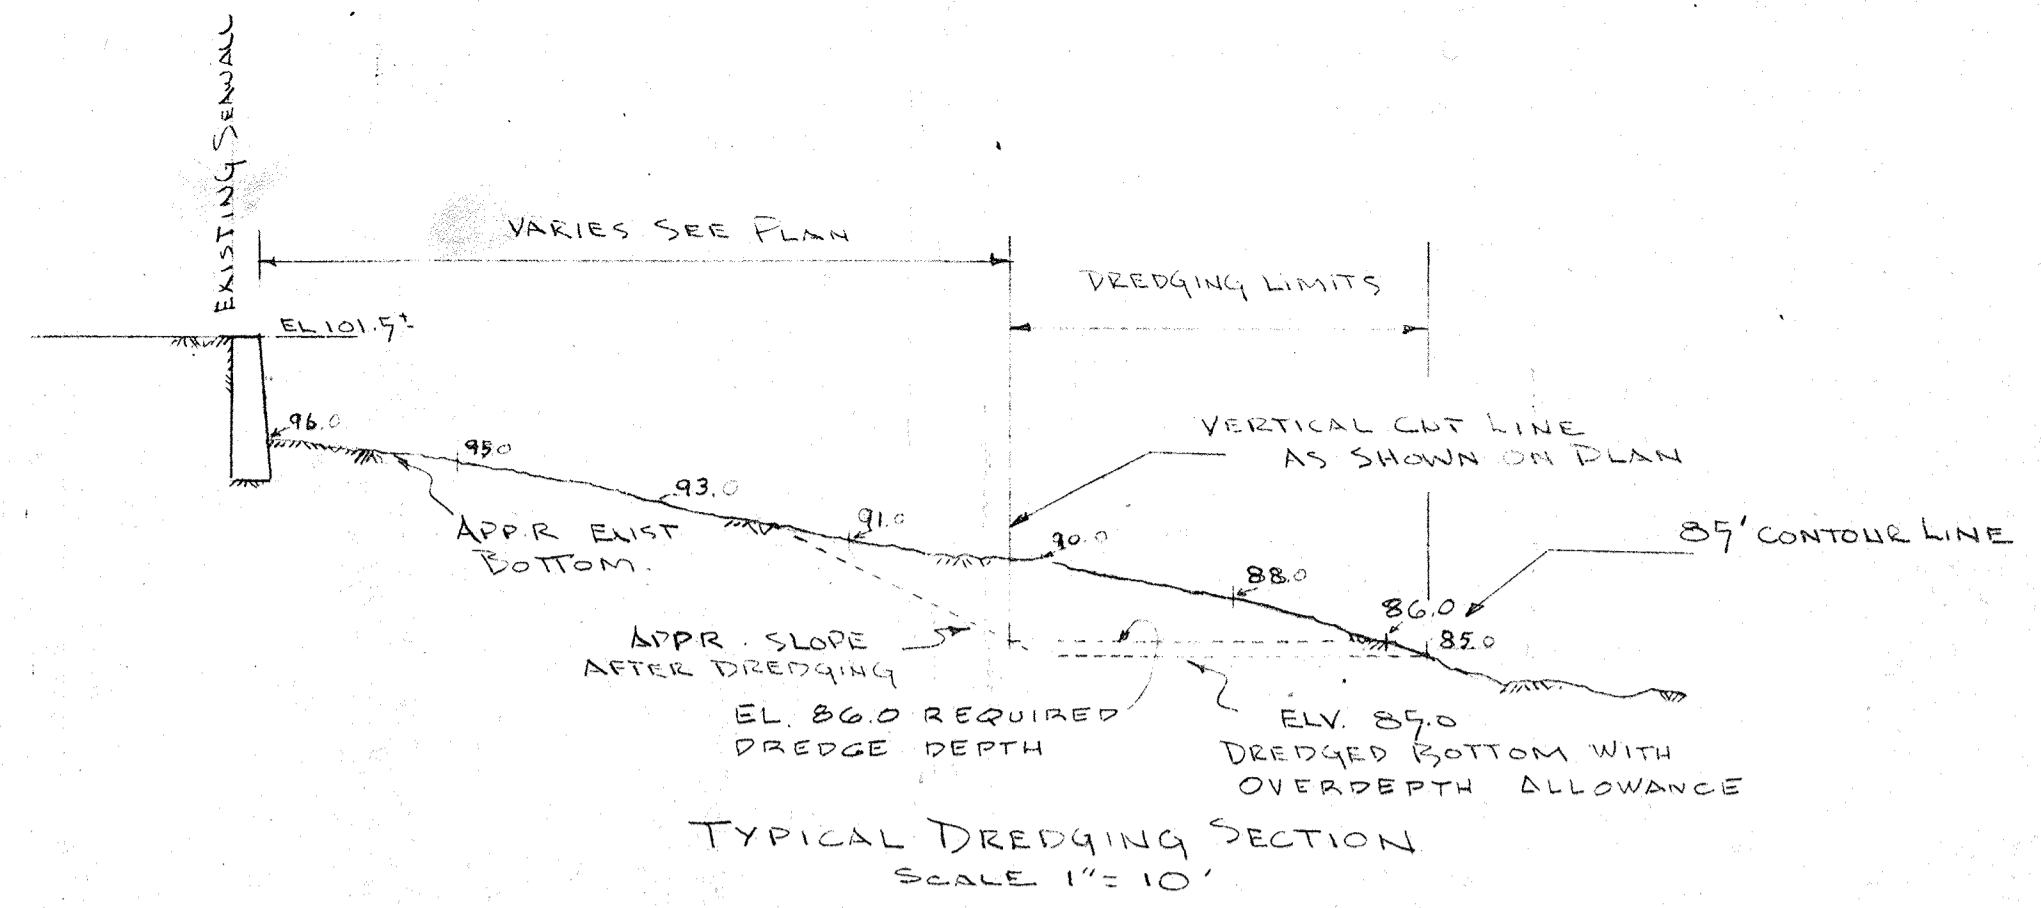 EXISTING SEAWALL
VARIES SEE PLAN
DREDGING LIMITS
EL 101.5±
96.0
95.0
93.0
91.0
90.0
88.0
86.0
85.0
VERTICAL CUT LINE
AS SHOWN ON PLAN
85' CONTOUR LINE
APP.R EXIST
BOTTOM.
APP.R. SLOPE
AFTER DREDGING
EL. 86.0 REQUIRED
DREDGE DEPTH
ELV. 85.0
DREDGED BOTTOM WITH
OVERDEPTH ALLOWANCE
TYPICAL DREDGING SECTION
SCALE 1"= 10'